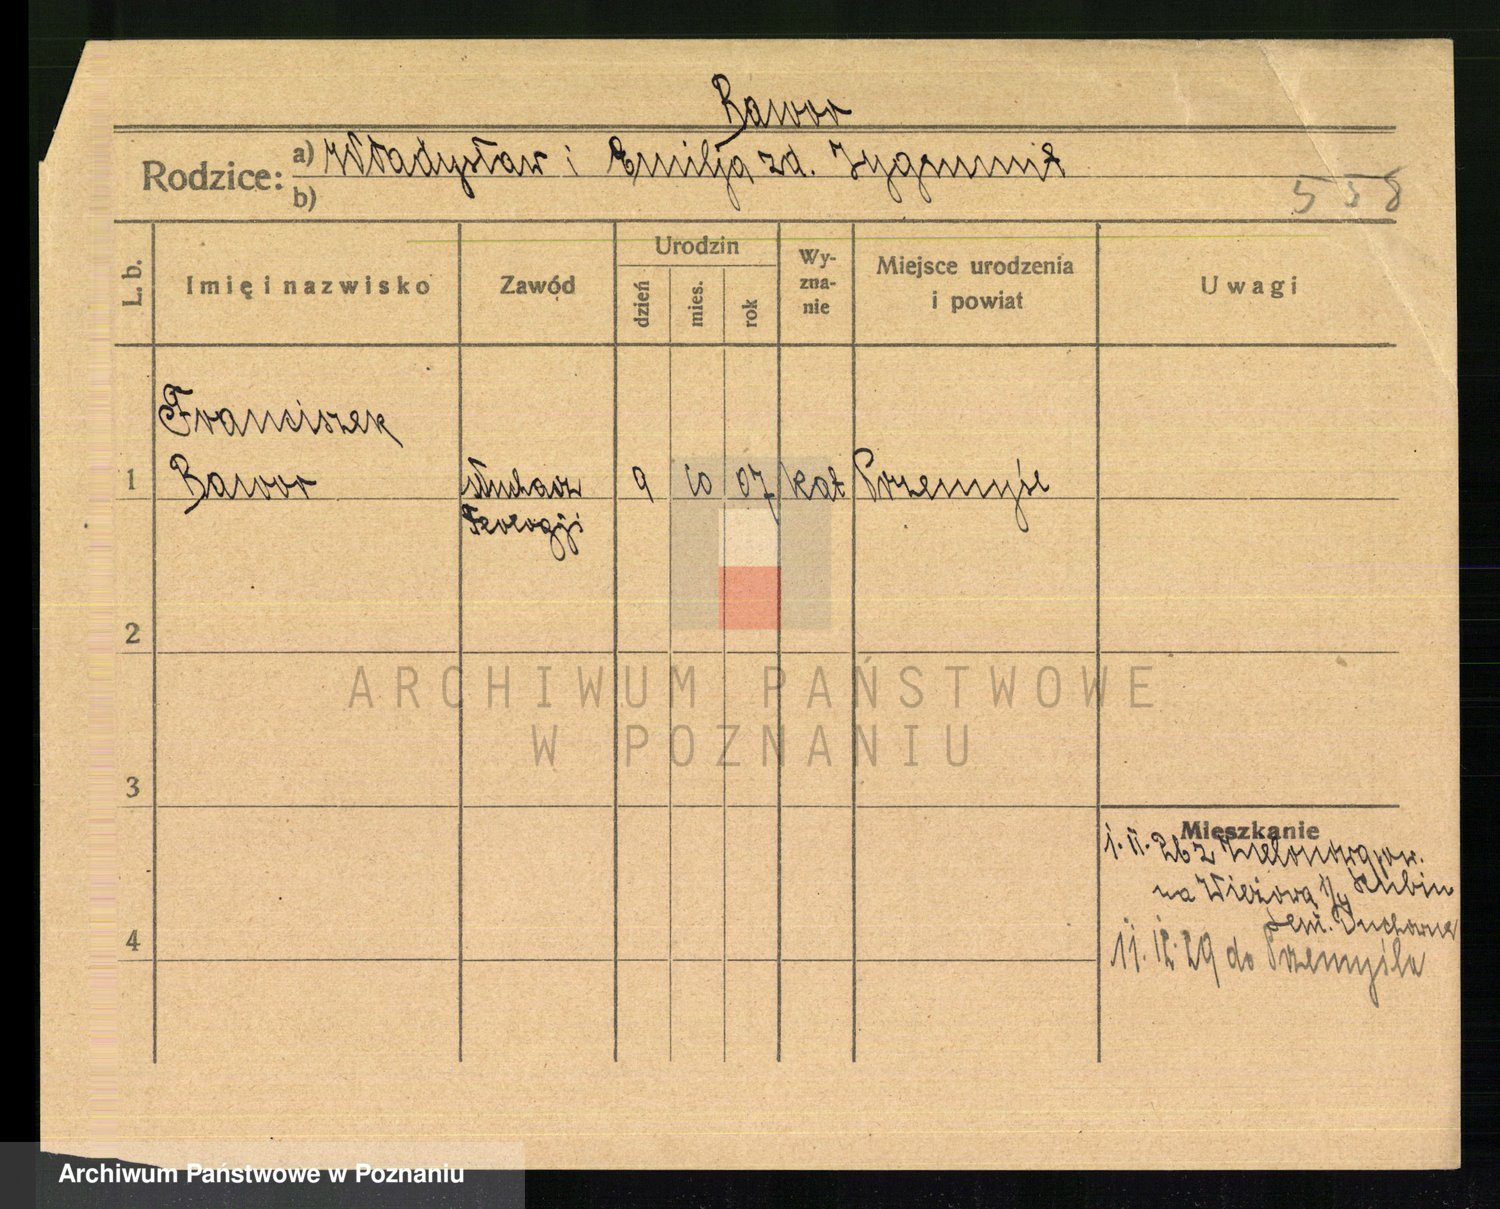 Bawor
Rodzice: a) Władysław i Emilja zd. Zygmunt
b)
558
L. b.
Imię i nazwisko
Zawód
Urodzin
dzień
mies.
rok
Wy-
zna-
nie
Miejsce urodzenia
i powiat
Uwagi
Franciszek
1 Bawor słuchacz 9 10 07 kat Przemyśl
Teologji
2
ARCHIWUM PAŃSTWOWE
W POZNANIU
3
Mieszkanie
1. 11. 26 z
na Wieżową Lubin
Sem. Duchowne
4
11. 12. 29 do Przemyśla
Archiwum Państwowe w Poznaniu